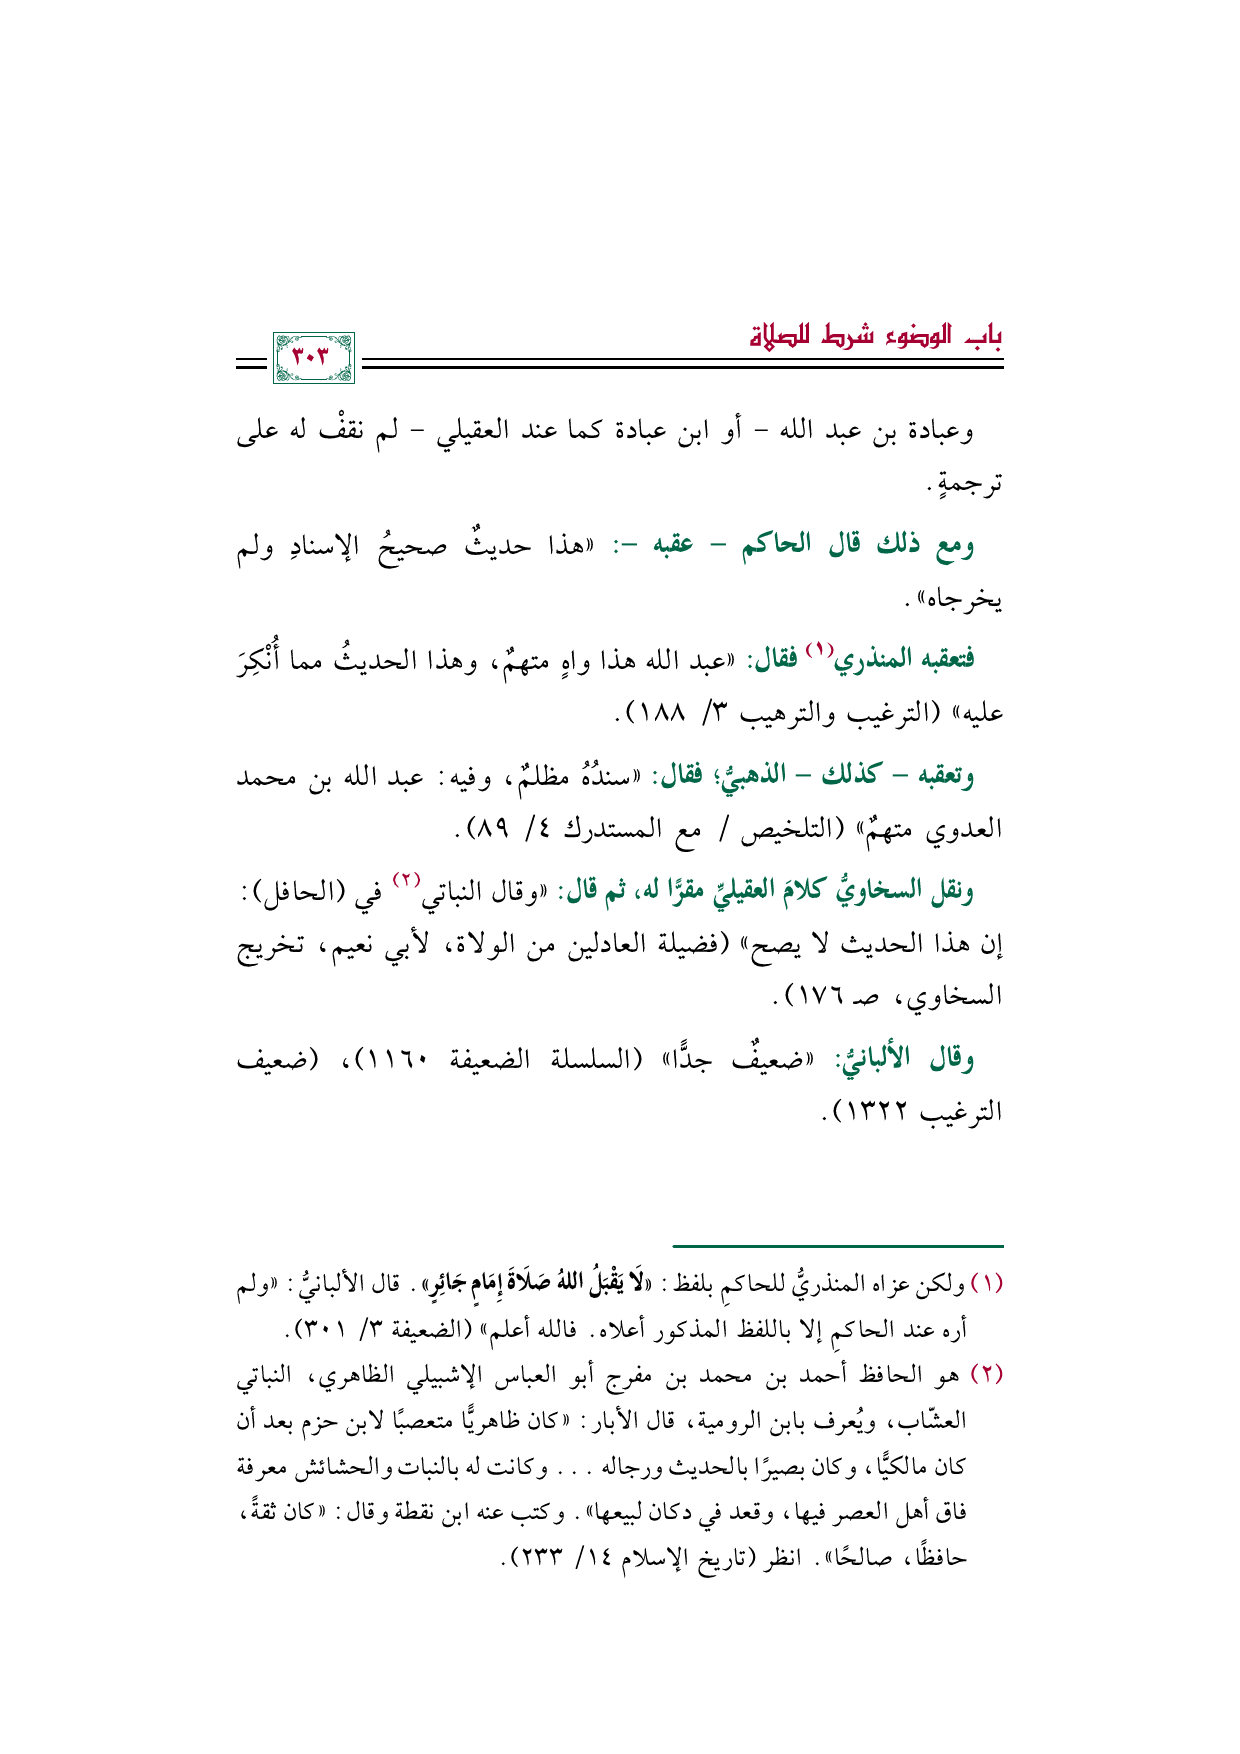 باب الوضوء شرط للصلاة
٣٠٣
وعبادة بن عبد الله – أو ابن عبادة كما عند العقيلي – لم نقفْ له على
ترجمةٍ.
ومع ذلك قال الحاكم – عقبه –: «هذا حديثٌ صحيحُ الإسنادِ ولم
يخرجاه».
فتعقبه المنذري(١) فقال: «عبد الله هذا واهٍ متهمٌ، وهذا الحديثُ مما أُنْكِرَ
عليه» (الترغيب والترهيب ٣/ ١٨٨).
وتعقبه – كذلك – الذهبيُّ؛ فقال: «سندُهُ مظلمٌ، وفيه: عبد الله بن محمد
العدوي متهمٌ» (التلخيص / مع المستدرك ٤/ ٨٩).
ونقل السخاويُّ كلامَ العقيليِّ مقرًّا له، ثم قال: «وقال النباتي(٢) في (الحافل):
إن هذا الحديث لا يصح» (فضيلة العادلين من الولاة، لأبي نعيم، تخريج
السخاوي، صـ ١٧٦).
وقال الألبانيُّ: «ضعيفٌ جدًّا» (السلسلة الضعيفة ١١٦٠)، (ضعيف
الترغيب ١٣٢٢).
(١) ولكن عزاه المنذريُّ للحاكمِ بلفظ: «لَا يَقْبَلُ اللهُ صَلَاةَ إِمَامٍ جَائِرٍ». قال الألبانيُّ: «ولم
أره عند الحاكمِ إلا باللفظ المذكور أعلاه. فالله أعلم» (الضعيفة ٣/ ٣٠١).
(٢) هو الحافظ أحمد بن محمد بن مفرج أبو العباس الإشبيلي الظاهري، النباتي
العشّاب، ويُعرف بابن الرومية، قال الأبار: «كان ظاهريًّا متعصبًا لابن حزم بعد أن
كان مالكيًّا، وكان بصيرًا بالحديث ورجاله ... وكانت له بالنبات والحشائش معرفة
فاق أهل العصر فيها، وقعد في دكان لبيعها». وكتب عنه ابن نقطة وقال: «كان ثقةً،
حافظًا، صالحًا». انظر (تاريخ الإسلام ١٤/ ٢٣٣).